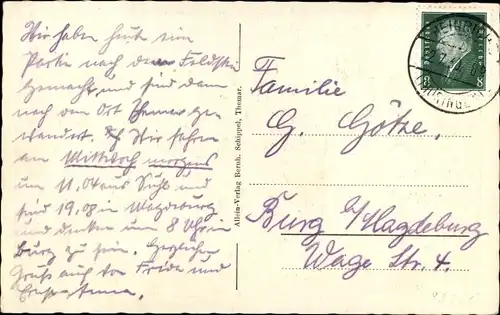 Wir haben heute eine
Partie nach dem Feldstein
gemacht und sind dann
nach den Ort Themar ge-
wandert. Wir fahren
am Mittwoch morgens
um 11.04 aus Suhl und
sind 19.08 in Magdeburg
und denken um 8 Uhr in
Burg zu sein. Herzlichen
Gruß auch an Frieda und
Anna.
Allein-Verlag Bernh. Schippel, Themar.
Familie
G. Götze,
Burg b/Magdeburg
Wage Str. 4.
DEUTSCHES REICH
8 8